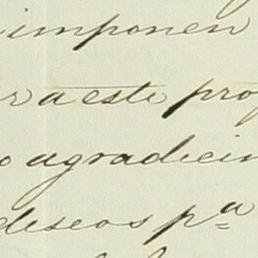 imponen
ra este pro
o agradecim
deseos pª